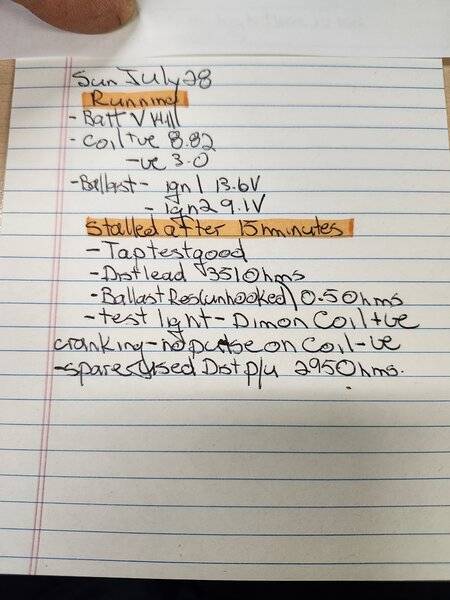 Sun July 28
Running
- Batt V
- Coil +ve 8.82
-ve 3.0
- Ballast - ign 1 13.6V
- Ign2 9.1V
Stalled after 15 minutes
- Tap test good
- Dist lead 351 Ohms
- Ballast Res (unhooked) 0.5 Ohms
- test light - Dim on Coil +ve
cranking - no pulse on Coil -ve
- spare used Dist p/u 295 Ohms.